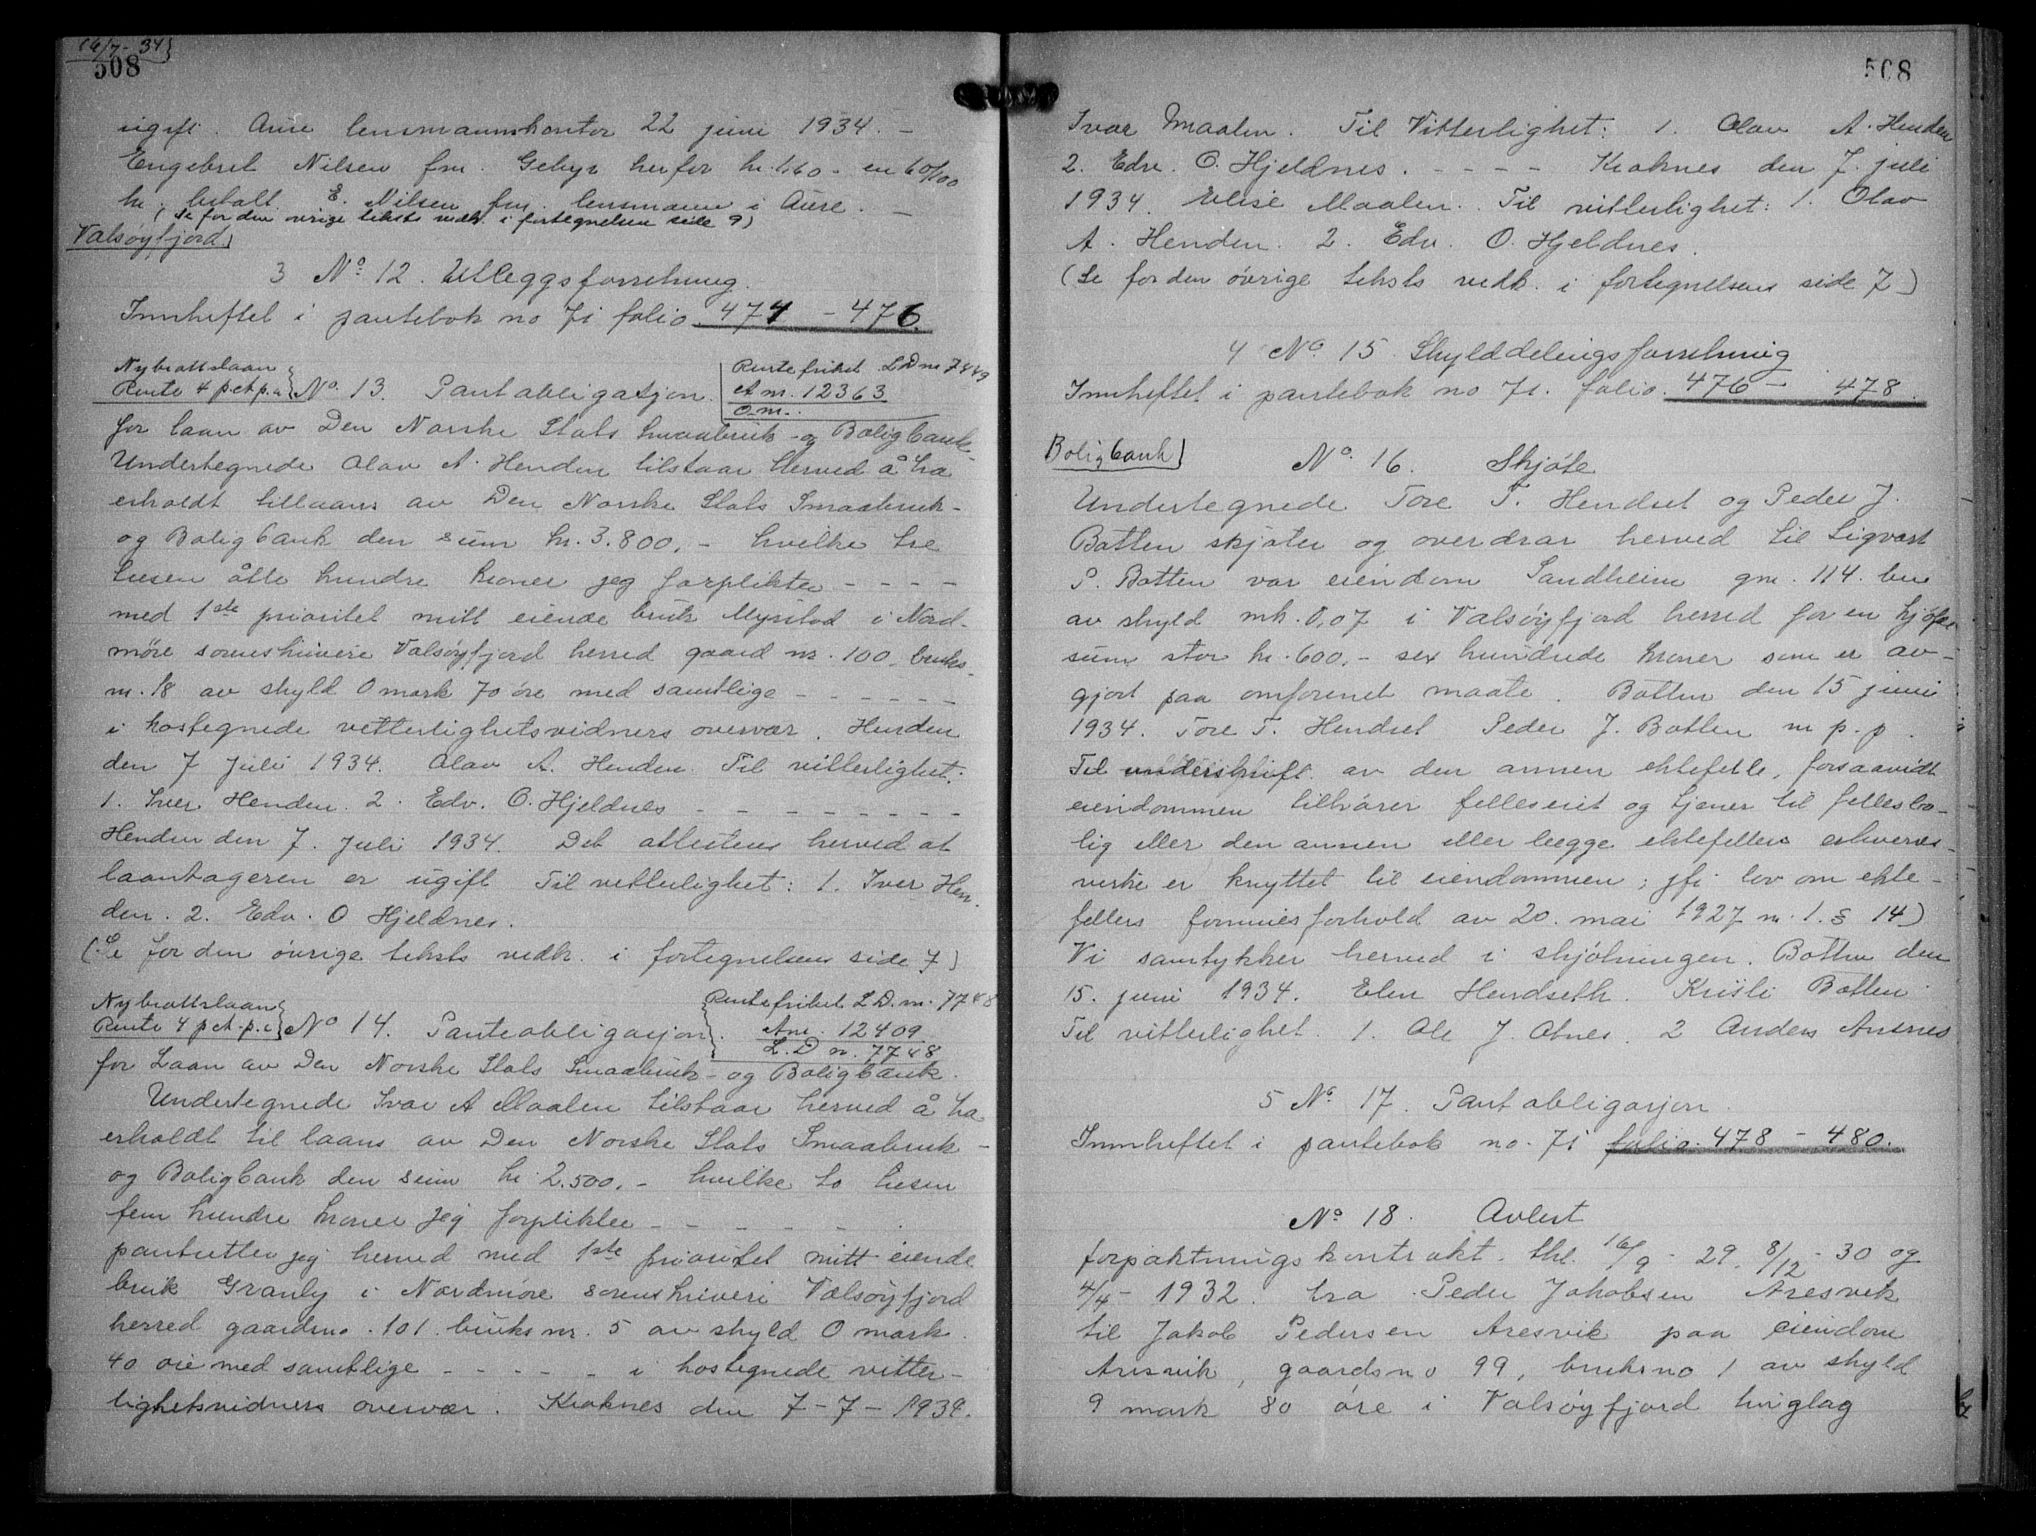 16/7-34
508
ugift. Aure lensmannskontor 22 juni 1934. -
Engebret Nilsen fm. Gebyr herfor kr. 1.60 - en 60/100
kr. betalt. E. Nilsen fm. lensmann i Aure. -
(Se for den øvrige teksts vedk. i fortegnelsen side 9)
Valsøyfjord
3 No 12. Utleggsforretning.
Innheftet i pantebok no 71 folio 474 - 476.
Nybrottslaan
Rente 4 pct p.a No. 13. Pantobligasjon.
Rentefrihet LD nr 7449
A nr. 12363
O.m..
for laan av Den Norske Stats Smaabruk- og Boligbank.
Undertegnede Olav A. Henden tilstaar herved å ha
erholdt tillaans av Den Norske Stats Smaabruk-
og Boligbank den sum kr. 3.800,- hvilke tre
tusen åtte hundre kroner jeg forplikter - - - -
med 1ste prioritet mitt eiende bruk Myrstad i Nord-
møre sorenskriveri Valsøyfjord herred gaard nr. 100, bruks-
nr. 18 av skyld 0 mark 70 øre med samtlige - - - - -
i hostegnede vitterlighetsvidners overvær. Henden
den 7 Juli 1934. Olav A. Henden. Til vitterlighet:
1. Iver Henden. 2. Edv. O. Hjeldnes - - - - - - - -
Henden den 7. Juli 1934. Det attesteres herved at
laantageren er ugift. Til vitterlighet: 1. Iver Hen-
den. 2. Edv. O Hjeldnes.
(Se for den øvrige teksts vedk. i fortegnelsen side 7)
Nybrottslaan
Rente 4 pct. p.a No 14. Panteobligasjon
Rentefrihet L.D. nr. 7748
A nr. 12409
L. D nr. 7748
for Laan av Den Norske Stats Smaabruk- og Boligbank.
Undertegnede Ivar A Maalen tilstaar herved å ha
erholdt til laans av Den Norske Stats Smaabruk-
og Boligbank den sum kr 2.500,- hvilke to tusen
fem hundre kroner jeg forplikter - - - - - -
pantsetter jeg herved med 1ste prioritet mitt eiende
bruk Granly i Nordmøre sorenskriveri Valsøyfjord
herred gaardsno. 101. bruksnr. 5 av skyld 0 mark
40 øre med samtlige - - - - - i hostegnede vitter-
lighetsvidners overvær. Kraknes den 7-7-1934.
508
Ivar Maalen. Til Vitterlighet: 1. Olav A. Henden
2. Edv. O. Hjeldnes. - - - - Kraknes den 7. juli
1934. Elise Maalen. Til vitterlighet: 1. Olav
A. Henden. 2. Edv. O. Hjeldnes.
(Se for den øvrige teksts vedk. i fortegnelsens side 7)
4 No. 15. Skylddelingsforretning
Innheftet i pantebok no 71. folio. 476 - 478.
Boligbank
No. 16. Skjøte
Undertegnede Tore T. Hendset og Peder J.
Botten skjøter og overdrar herved til Sigvart
P. Botten vor eiendom Sandheim gnr. 114. bnr
av skyld mk. 0,07 i Valsøyfjord herred for en kjøpe-
sum stor kr. 600,- sex hundrede kroner som er av-
gjort paa omforenet maate. Botten den 15 juni
1934. Tore T. Hendset Peder J. Botten m p. p.
Til underskrift av den annen ektefelle, forsaavidt
eiendommen tilhører felleseiet og tjener til fellesbo-
lig eller den annen eller begge ektefellers erhvervs-
virke er knyttet til eiendommen; jfr lov om ekte-
fellers formuesforhold av 20. mai 1927 nr. 1. § 14)
Vi samtykker herved i skjøtningen. Botten den
15. juni 1934. Elen Hendseth. Kristi Botten.
Til vitterlighet. 1. Ole J. Otnes. 2 Anders Aresnes
5 No. 17. Pantobligasjon.
Innheftet i pantebok no. 71 folio. 478 - 480.
No. 18. Avlest
forpaktningskontrakt. thl. 16/9 - 29. 8/12 - 30 og
4/4 - 1932. fra Peder Jakobsen Aresvik
til Jakob Pedersen Aresvik paa eiendom
Aresvik, gaardsno 99, bruksno 1 av skyld
9 mark 80 øre i Valsøyfjord tinglag